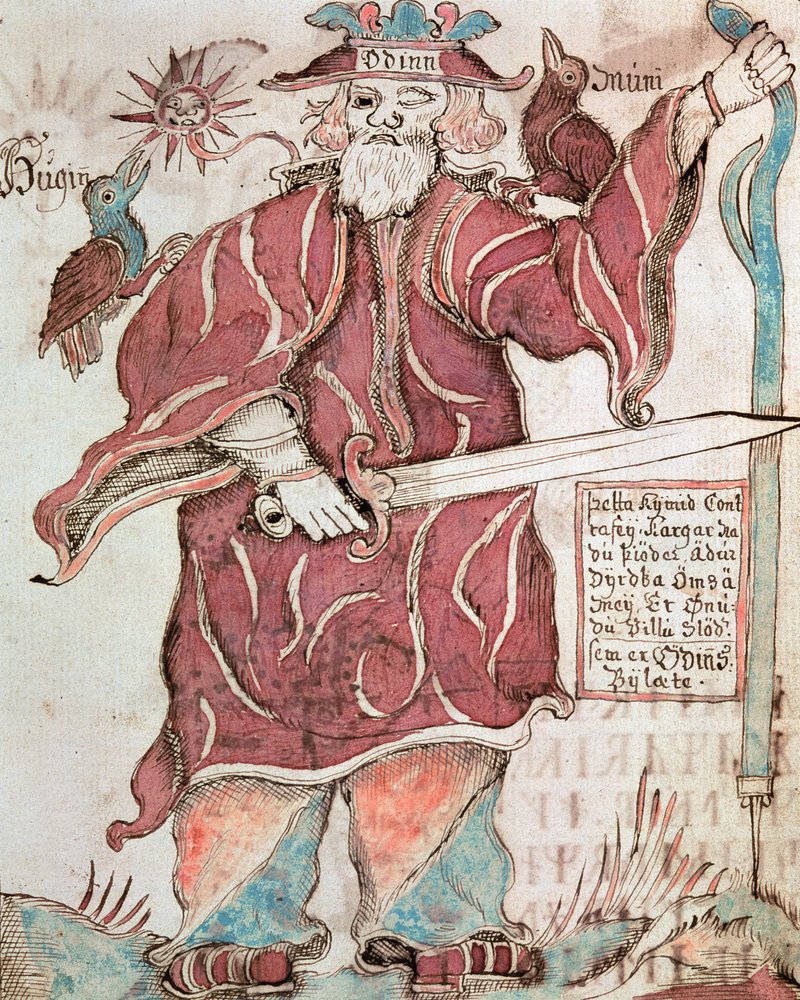 Odinn
Muni
Hugin̄
Þetta Kymid Cont
rafeÿ, Kargar Na
du Þiöder Ädur
Dÿrdka Ömsä
meÿ, Er Ønu:
du Villu Slöd:
sem er Odin̄s
Bÿlæte.